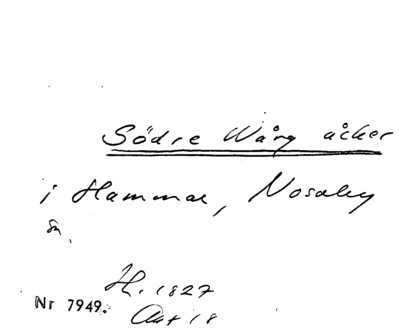 Södre Wång åcker
i Hammar, Nosaby
sn.
H. 1827
Nr 7949.
Akt 18